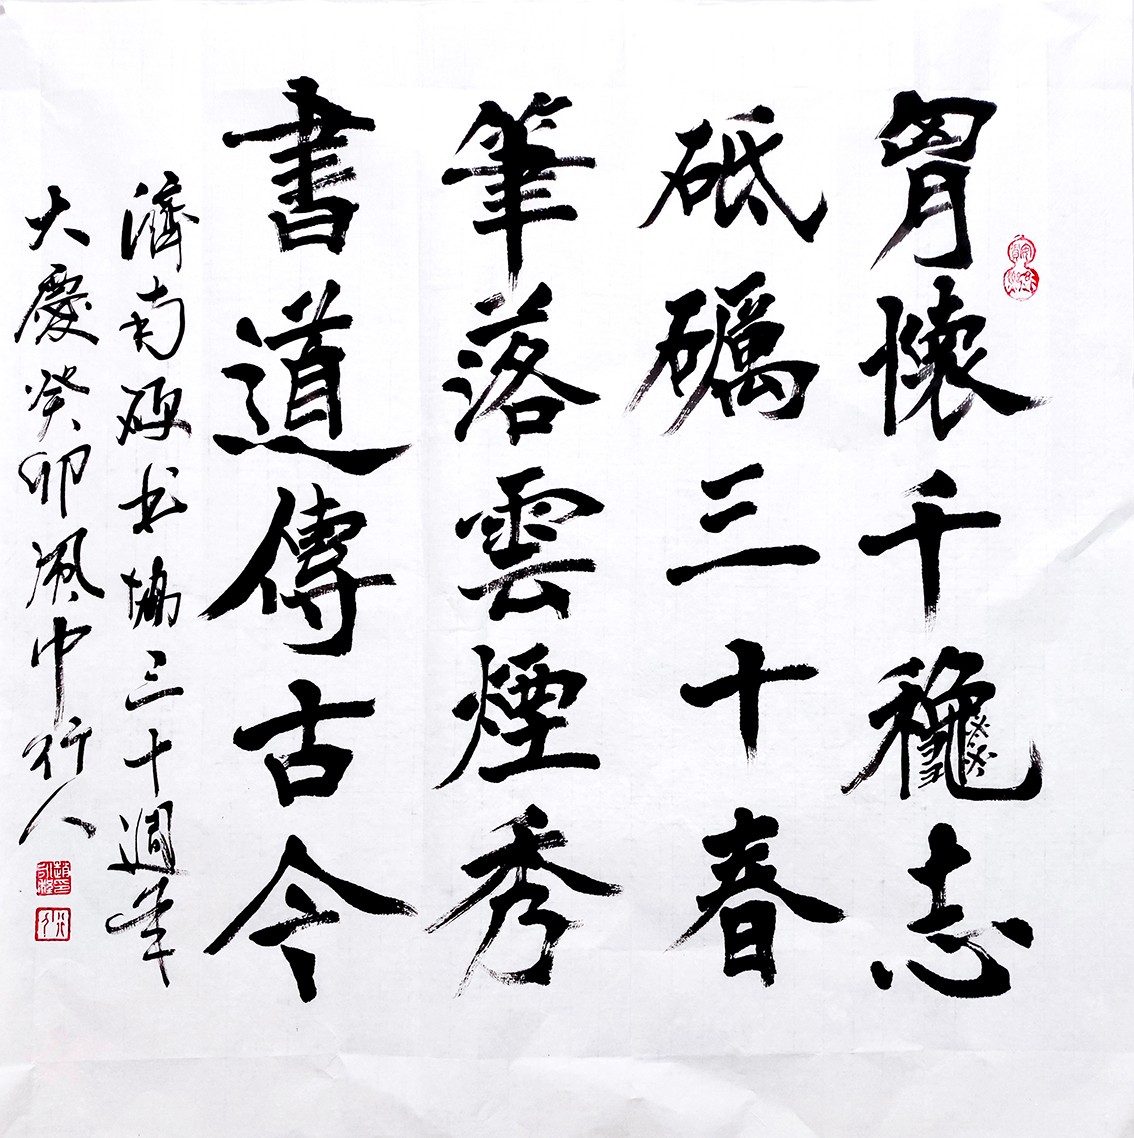 胷懷千龝志
砥礪三十春
筆落雲煙秀
書道傳古今
濟南硬书協三十週年
大慶癸卯風中行人